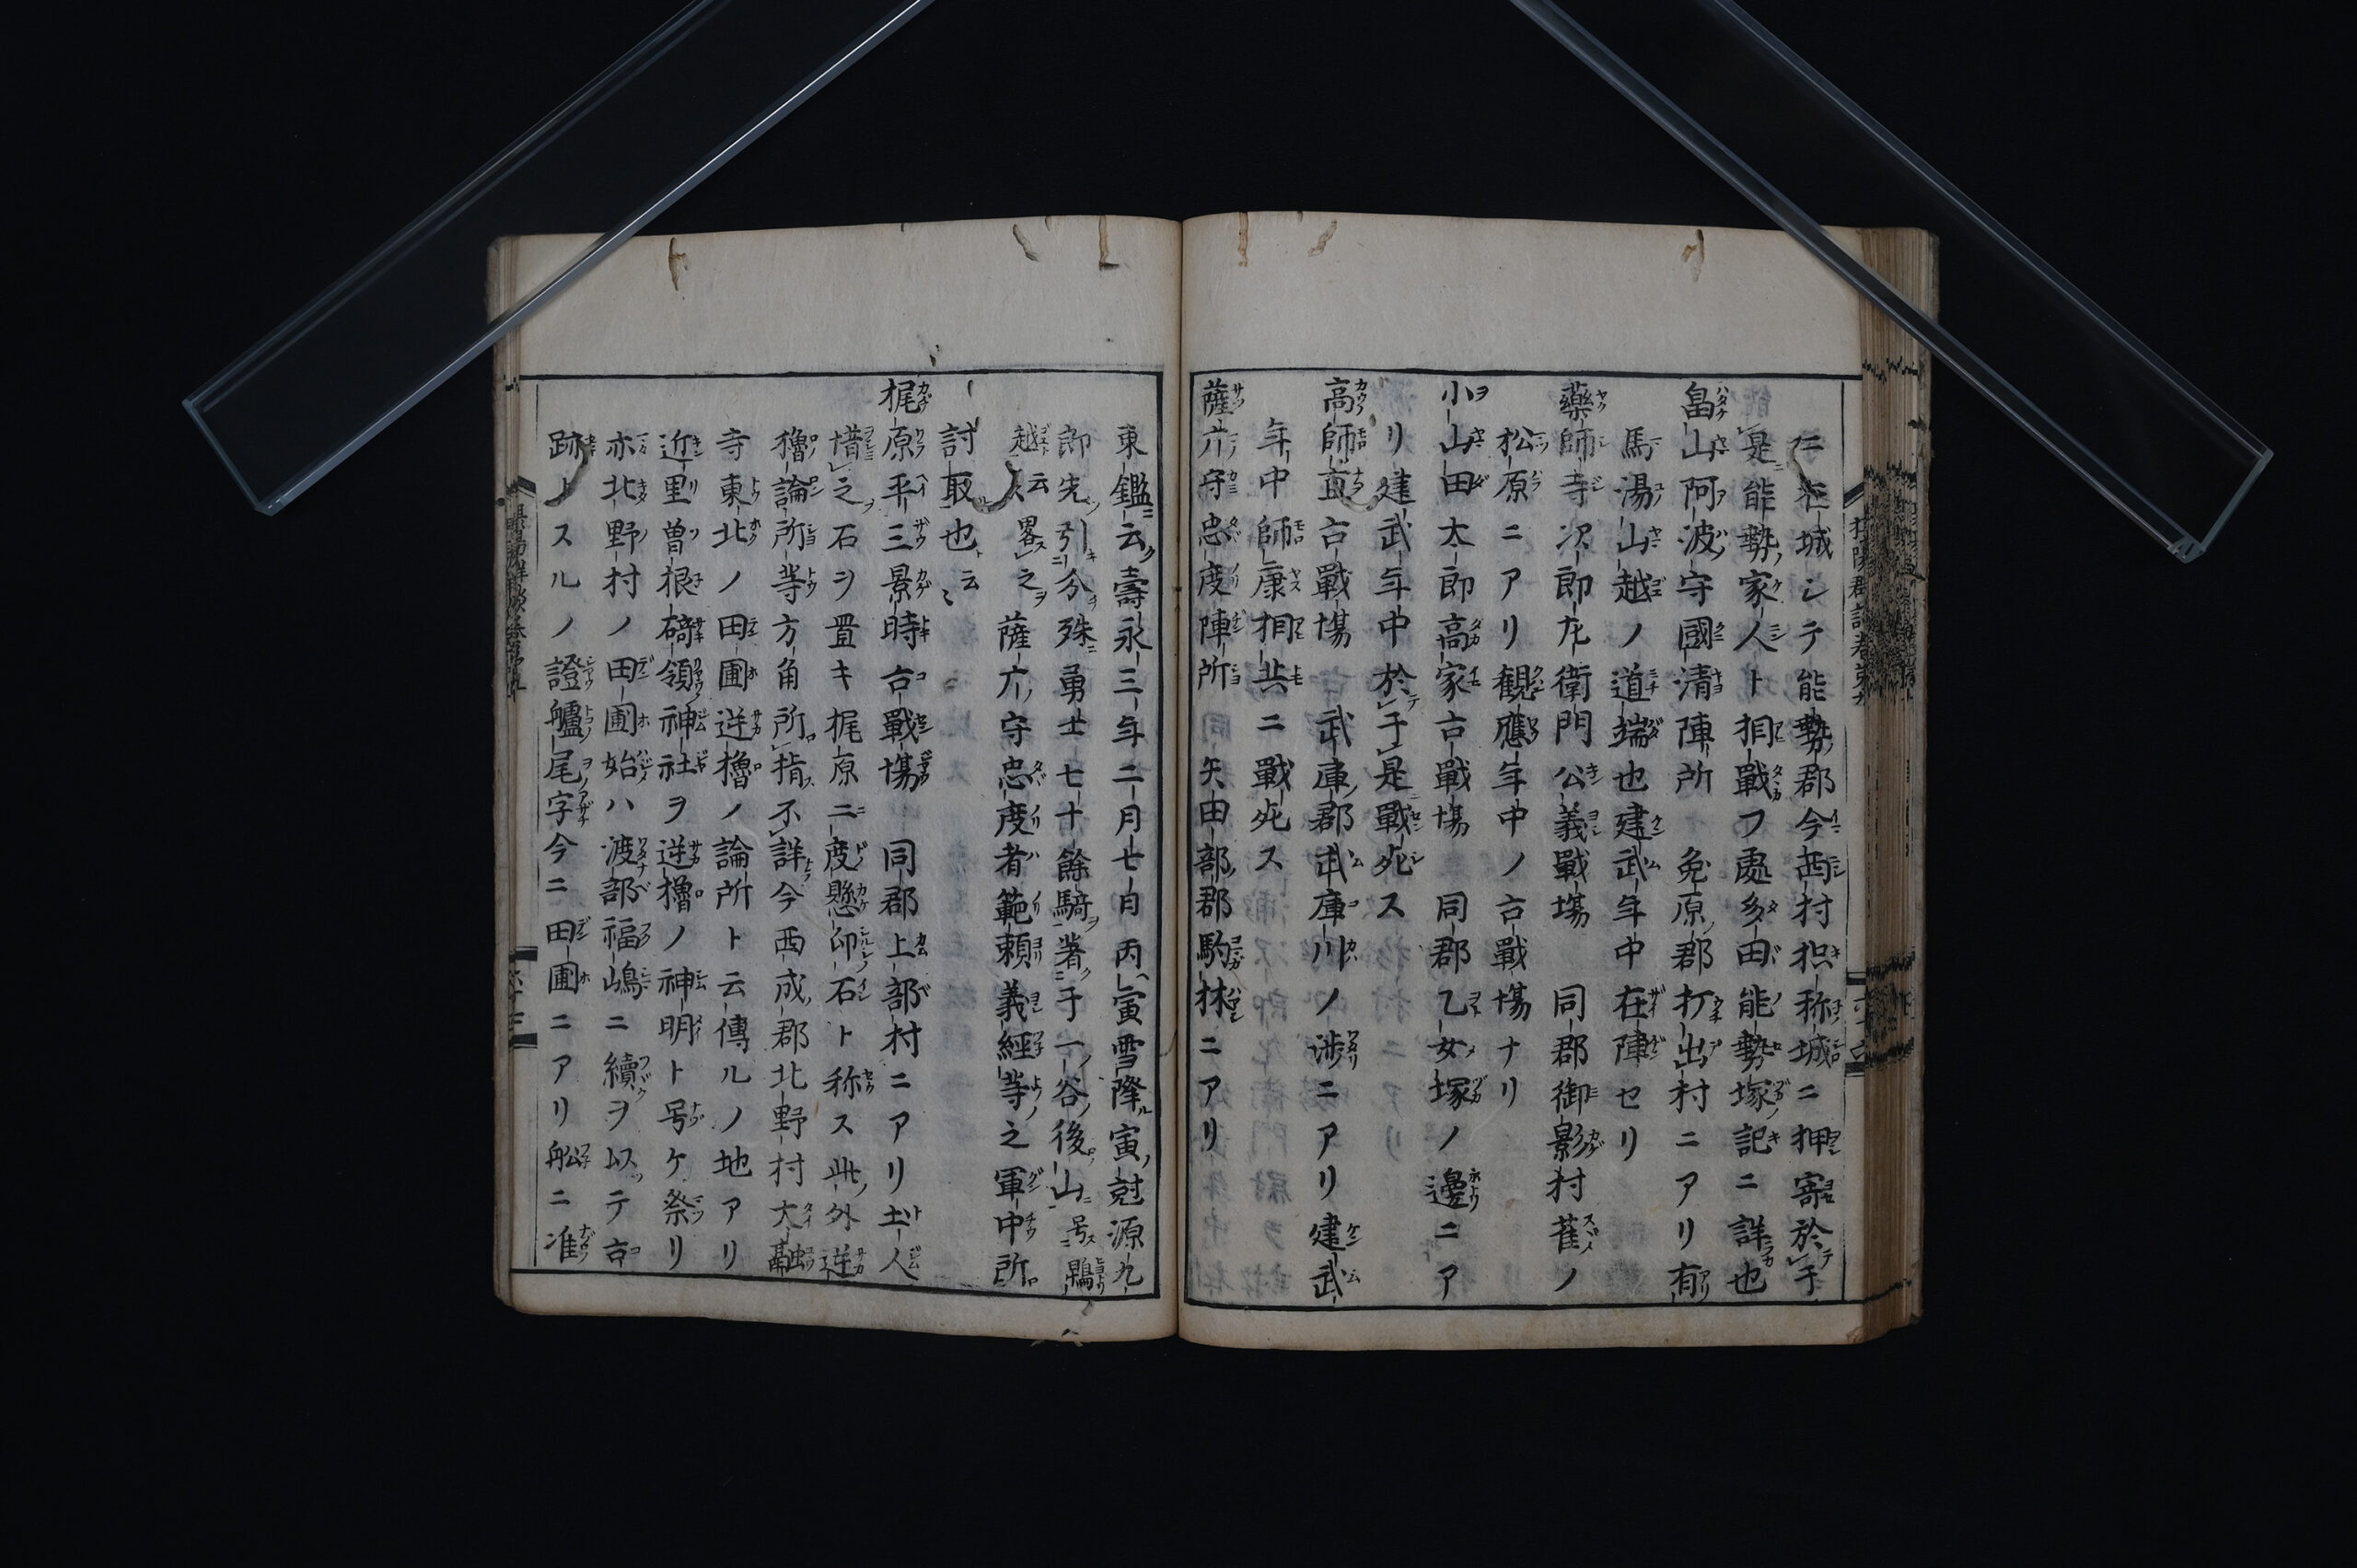 ニ在城シテ能勢郡今西村枳称城ニ押寄於于
是能勢家人ト相戰フ處多田能勢塚記ニ詳也
畠山阿波守國清陣所　兔原郡打出村ニアリ有
馬湯山越ノ道端也建武年中在陣セリ
藥師寺次郎左衛門公義戰塲　同郡御影村雀ノ
松原ニアリ觀應年中ノ古戰塲ナリ
小山田太郎高家古戰塲　同郡乙女塚ノ邊ニア
リ建武年中於于是戰死ス
高師直古戰塲　武庫郡武庫川ノ渉ニアリ建武
年中師康相共ニ戰死ス
薩广守忠度陣所　矢田部郡駒林ニアリ
東鑑云壽永三年二月七日丙寅雪降寅尅源九
郎先引分殊勇士七十餘騎著于一谷後山号鵯
越云云畧之　薩广守忠度者範頼義經等之軍中所
討取也云〻
梶原平三景時古戰塲　同郡上部村ニアリ土人
惜之石ヲ置キ梶原二度懸印石ト称ス此外逆
櫓論所等方角所指不詳今西成郡北野村大融
寺東北ノ田圃逆櫓ノ論所ト云傳ルノ地アリ
近里曽根碕領神社ヲ逆櫓ノ神明ト号ケ祭リ
亦北野村ノ田圃始ハ渡部福嶋ニ續ヲ以テ古
跡トスルノ證艫尾字今ニ田圃ニアリ舩ニ准